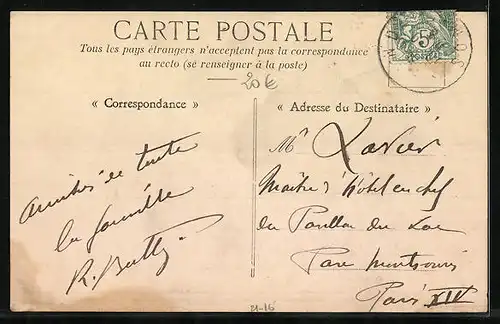 CARTE POSTALE
Tous les pays étrangers n'acceptent pas la correspondance
au recto (se renseigner à la poste)
20€
« Correspondance »
« Adresse du Destinataire »
5
amitiés de toute
la famille
R.
Mr Xavier
Maître d'hôtel en chef
du Pavillon du Lac
Parc Montsouris
Paris XIV
21-16